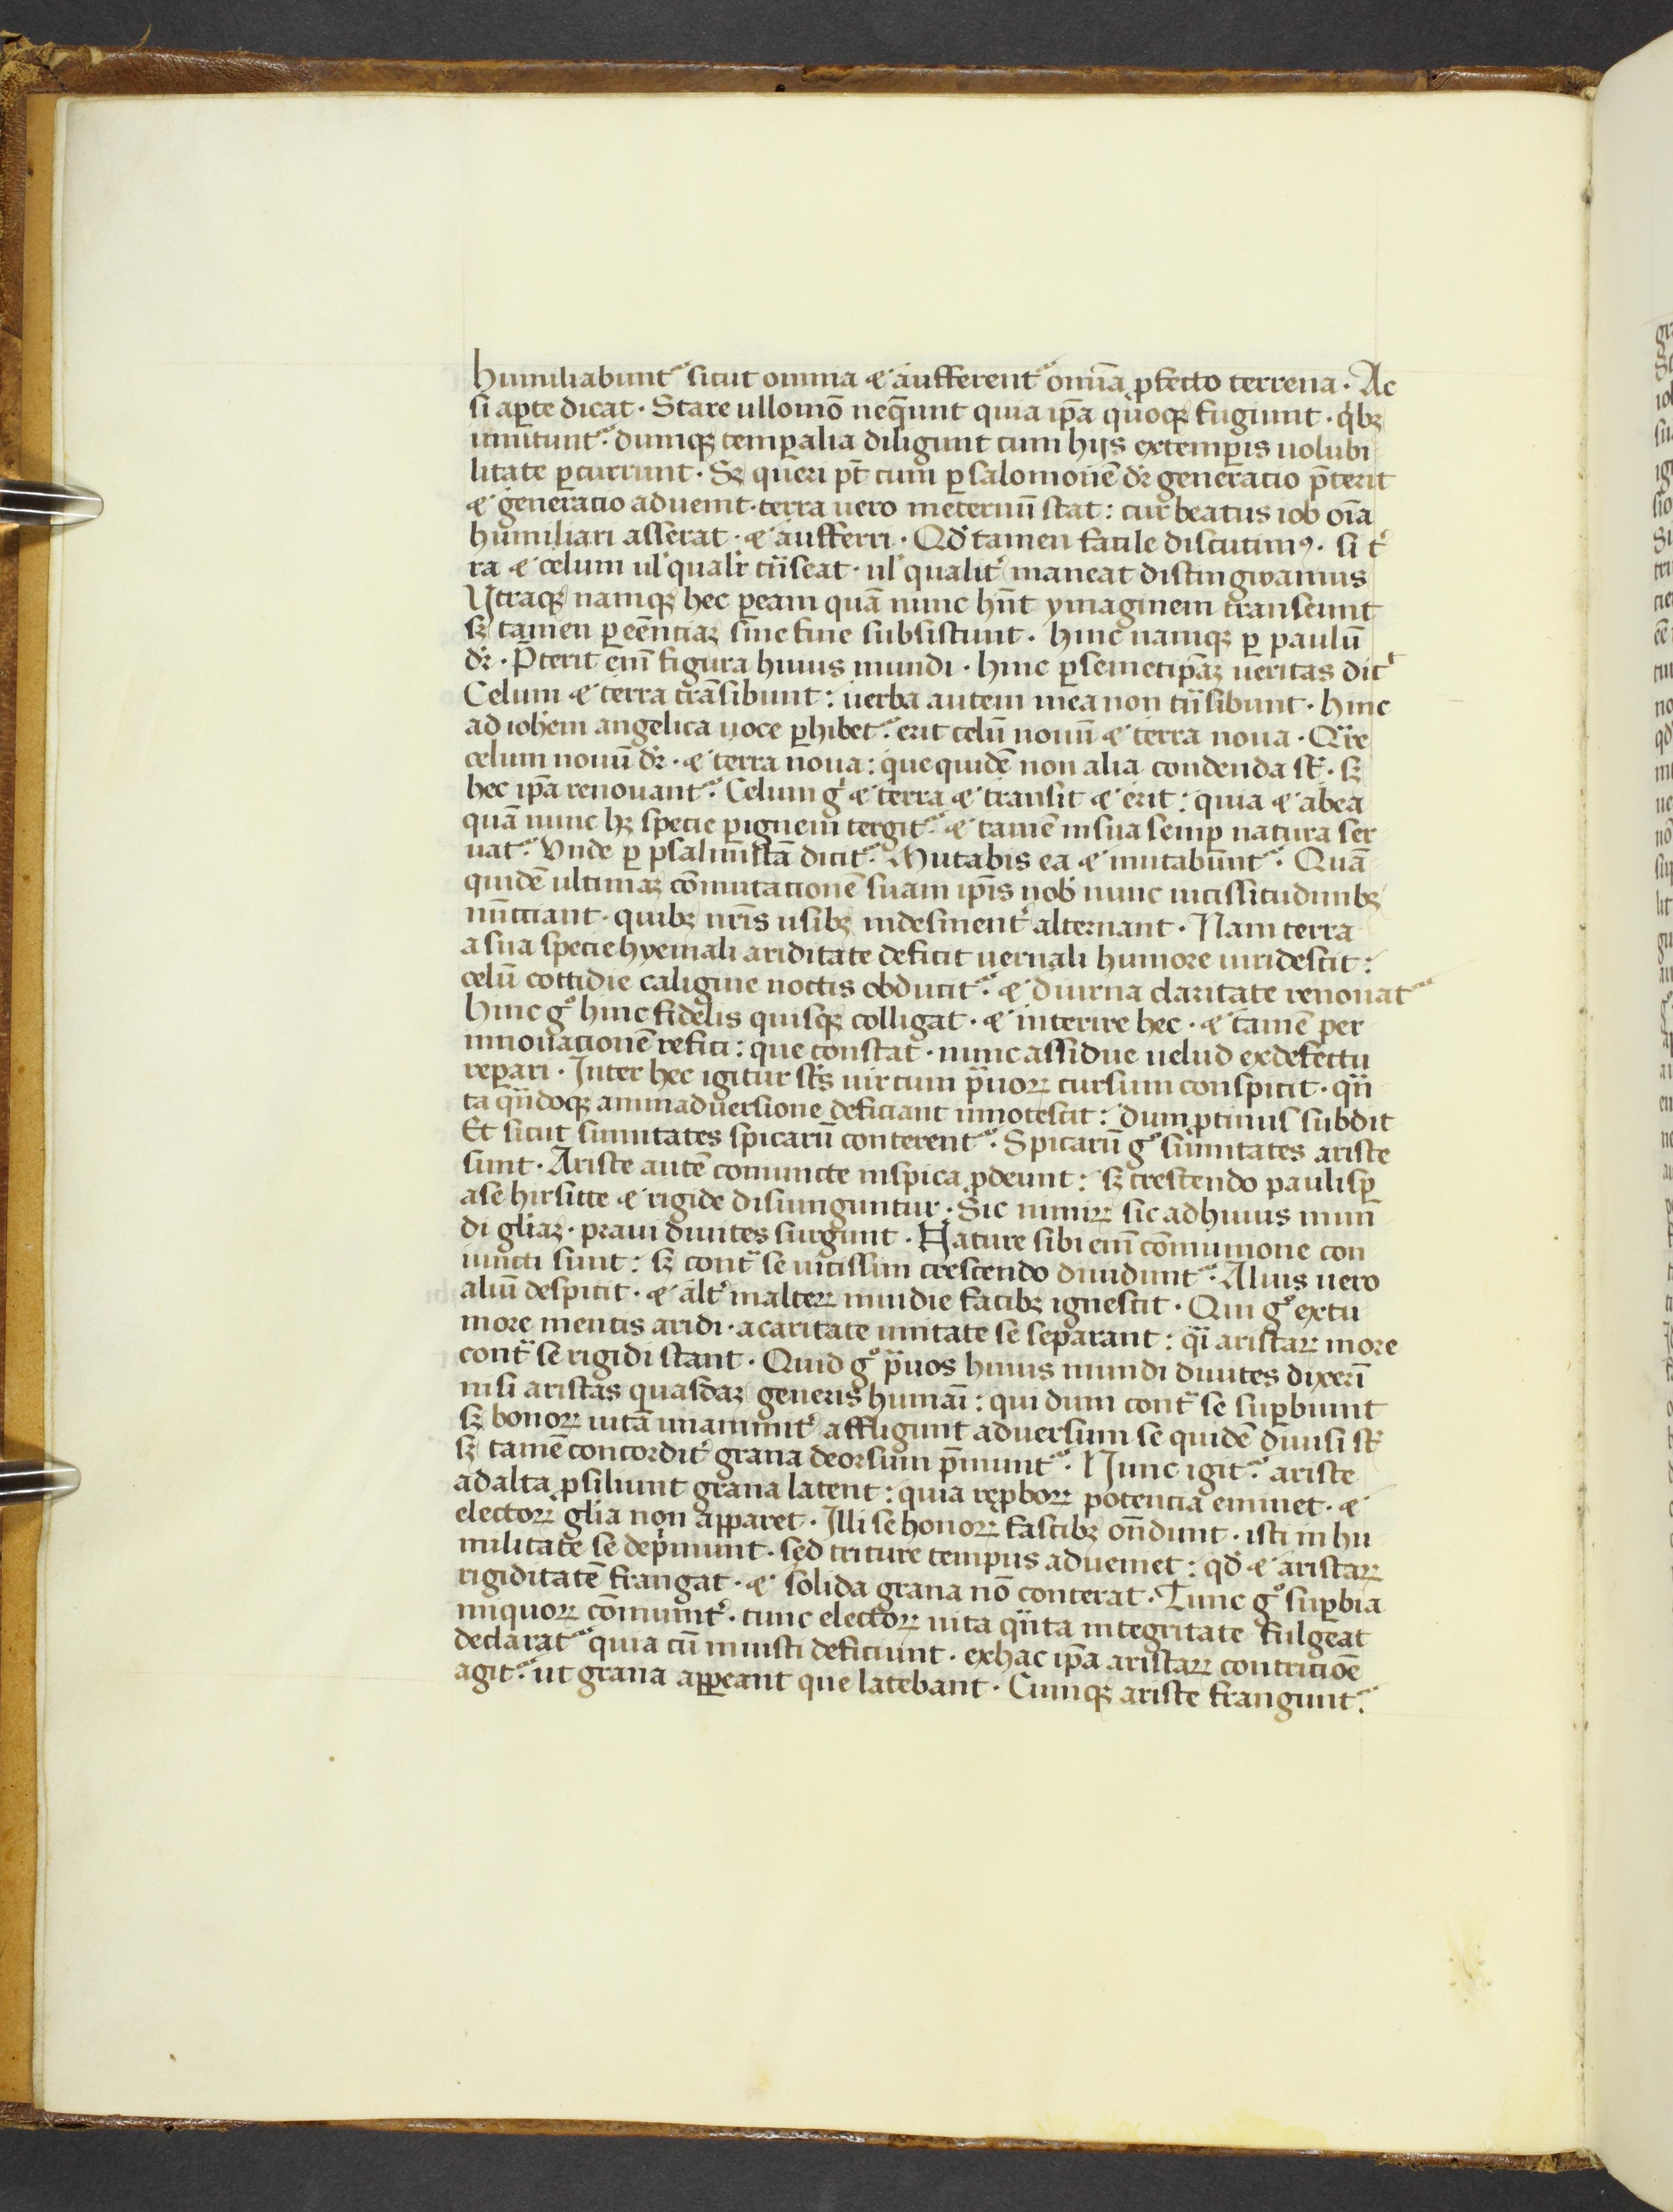 humiliabunt᷑ sicut omnia ⁊ aufferent᷑ om̅ia ꝓfecto terrena · Ac
si aꝑte dicat · Stare ullomo᷑ neq̅unt quia ip̅a quoqꝫ fugiunt · qͥbꝫ
innitunt᷑ · dumqꝫ temꝑalia diligunt cum hijs extemꝑis uolubi
litate ꝑcurrunt · Sꝫ queri pt̅ cum ꝑ salomone̅ dr̅ generacio p̅terit
⁊ generacio aduenit · terra uero ineternu̅ stat : cur beatus iob oi̅a
humiliari asserat · ⁊ aufferri · Qd̾ tamen facile discutimꝰ · si t̾
ra ⁊ celum ul̾ qualr̾ tͣnseat · ul̾ qualit̾ maneat distingwamus
Utraqꝫ namqꝫ hec ꝑeam qua̅ nunc hn̅t ymaginem transeunt
sꝫ tamen ꝑ ee̅nciaꝫ sine fine subsistunt · hinc namqꝫ ꝑ paulu̅
dr̅ · P̅terit eni̅ figura huius mundi · hinc ꝑ semetip̅aꝫ ueritas dic̾
Celum ⁊ terra tra̅sibunt : uerba autem mea non tͣnsibunt · hinc
ad ioh̅em angelica uoce ꝑhibet᷑ · erit celu̅ nouu̅ ⁊ terra noua · Qͣre
celum nouu̅ dr̅ · ⁊ terra noua : que quide̅ non alia condenda st̅ · sꝫ
hec ip̅a renouant᷑ · Celum gͥ ⁊ terra ⁊ transit ⁊ erit : quia ⁊ abea
qua̅ nunc hꝫ specie ꝑignem tergit᷑ · ⁊ tame̅ insua semꝑ natura ser
uat᷑ · Vnde ꝑ psalmista̅ dicit᷑ · Mutabis ea ⁊ mutabunt᷑ · Qua̅
quide̅ ultimaꝫ co̅mutacione̅ suam ip̅is nob̾ nunc uicissitudinibꝫ
nu̅cciant · quibꝫ nr̅is usibꝫ indesinent̾ alternant · Nam terra
a sua specie hyemali ariditate deficit uernali humore uiridescit :
celu̅ cottidie caligine noctis obducit᷑ · ⁊ diurna claritate renouat᷑
hinc gͦ hinc fidelis quisqꝫ colligat · ⁊ interire hec · ⁊ tame̅ per
innouacione̅ refici : que constat · nunc assidue uelud exdefectu
reꝑari · Inter hec igitur sc̅s uir cum pͣuoꝝ cursum conspicit · qͣn
ta qͣndoqꝫ animaduersione deficiant innotescit : dum ꝓtinus subdit
Et sicut sum̅itates spicaru̅ conterent᷑ · Spicaru̅ gͦ sum̅itates ariste
sunt · Ariste aute̅ coniuncte inspica ꝓdeunt : sꝫ crescendo paulisꝑ
ase hirsute ⁊ rigide disiunguntur · Sic nimiꝝ sic adhuius mun̅
di gl̾iaꝫ · praui diuites surgunt · Nature sibi eni̅ co̅munione con
iuncti sunt : sꝫ contͣ se uicissim crescendo diuidunt᷑ · Alius uero
aliu̅ despicit · ⁊ alt̾ inalteꝝ inuidie facibꝫ ignescit · Qui gͦ extu
more mentis aridi · acaritate unitate se separant : qͣi aristaꝝ more
contͣ se rigidi stant · Quid gͦ pͣuos huius mundi diuites dixeri̅
nisi aristas quasdaꝫ generis humai̅ : qui dum contͣ se suꝑbiunt
sꝫ bonoꝝ uita̅ unanimit̾ affligunt aduersum se quide̅ diuisi st̅
sꝫ tame̅ concordit̾ grana deorsum p̅munt᷑ · Nunc igit᷑ · ariste
adalta ꝓsiliunt grana latent : quia reꝓboꝝ potencia eminet · ⁊
electoꝝ gl̾ia non apparet · Illi se honoꝝ fascibꝫ on̅dunt · isti in hu
militate se depͥmunt · sed triture tempus adueniet : qd̾ ⁊ aristaꝝ
rigiditate̅ frangat · ⁊ solida grana no̅ conterat · Tunc gͦ suꝑbia
iniquoꝝ co̅minuit᷑ · tunc electoꝝ uita qͣnta integritate fulgeat
declarat᷑ quia cu̅ iniusti deficiunt · exhac ip̅a aristaꝝ contricioe̅
agit᷑ · ut grana apꝑeant que latebant · Cumqꝫ ariste frangunt᷑ ·